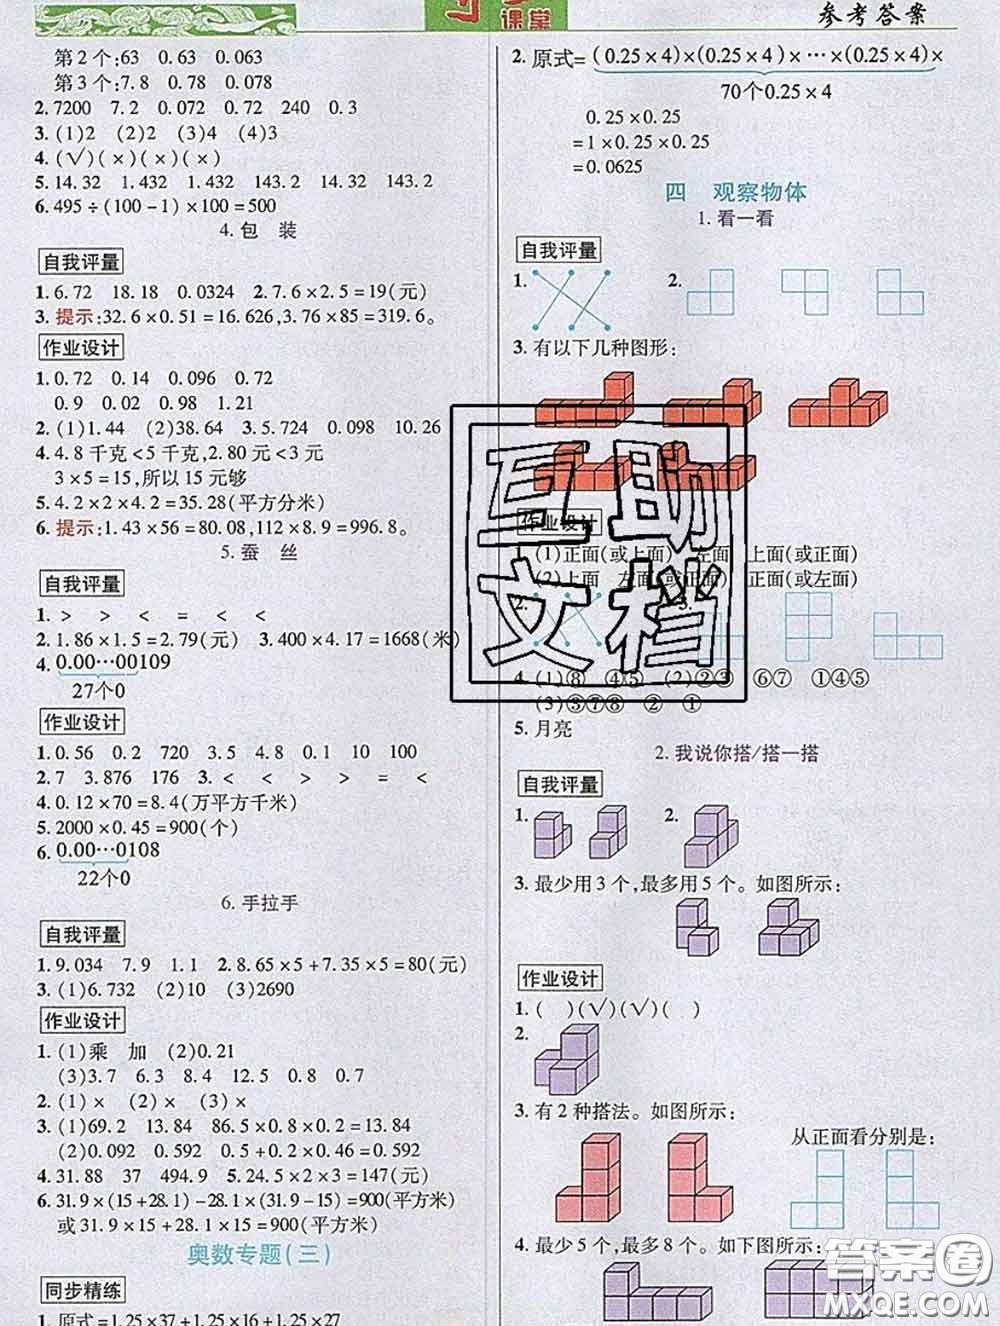 课堂
参考答案
第2个:63 0.63 0.063
第3个:7.8 0.78 0.078
2.7200 7.2 0.072 0.72 240 0.3
3.(1)2 (2)2 (3)4 (4)3
4.(√)(×)(×)(×)
5.14.32 1.432 1.432 143.2 14.32 143.2
6.495÷(100-1)×100=500
4.包 装
自我评量
1.6.72 18.18 0.0324 2.7.6×2.5=19(元)
3.提示:32.6×0.51=16.626,3.76×85=319.6。
作业设计
1.0.72 0.14 0.096 0.72
0.9 0.02 0.98 1.21
2.(1)1.44 (2)38.64 3.5.724 0.098 10.26
4.4.8千克<5千克,2.80元<3元
3×5=15,所以15元够
5.4.2×2×4.2=35.28(平方分米)
6.提示:1.43×56=80.08,112×8.9=996.8。
5.蚕 丝
自我评量
1.> > < = < <
2.1.86×1.5=2.79(元) 3.400×4.17=1668(米)
4.0.00…00109
27个0
作业设计
1.0.56 0.2 720 3.5 4.8 0.1 10 100
2.7 3.876 176 3.< < > > = <
4.0.12×70=8.4(万平方千米)
5.2000×0.45=900(个)
6.0.00…0108
22个0
6.手拉手
自我评量
1.9.034 7.9 1.1 2.8.65×5+7.35×5=80(元)
3.(1)6.732 (2)10 (3)2690
作业设计
1.(1)乘 加 (2)0.21
(3)3.7 6.3 8.4 5 0.8 0.7
2.(1)× (2)× (3)×
3.(1)69.2 13.84 86.5×0.8×0.2=13.84
(2)0.092 0.592 0.5+0.2×0.46=0.592
4.31.88 37 494.9 5.24.5×2×3=147(元)
6.31.9×(15+28.1)-28.1×(31.9-15)=900(平方米)
或31.9×15+28.1×15=900(平方米)
奥数专题(三)
同步精练
1.原式=1.25×37+1.25×16+1.25×27
2.原式=(0.25×4)×(0.25×4)×…×(0.25×4)×
70个0.25×4
0.25×0.25
=1×0.25×0.25
=0.0625
四 观察物体
1.看一看
自我评量
1. 2.
3.有以下几种图形:
作业设计
1.(1)正面(或上面) 左面 上面(或正面)
(2)上面 左面(或正面) 正面(或左面)
2. 3.
4.(1)⑧ ④⑤ (2)②③ ⑥⑦ ①④⑤
(3)③⑦⑧ ② ①
5.月亮
2.我说你搭/搭一搭
自我评量
1. 2.
3.最少用3个,最多用5个。如图所示:
作业设计
1.( )(√)(√)( )
2.
3.有2种搭法。如图所示:
从正面看分别是:
4.最少5个,最多8个。如下图所示:
互助
文档
答案圈
MXQE.COM